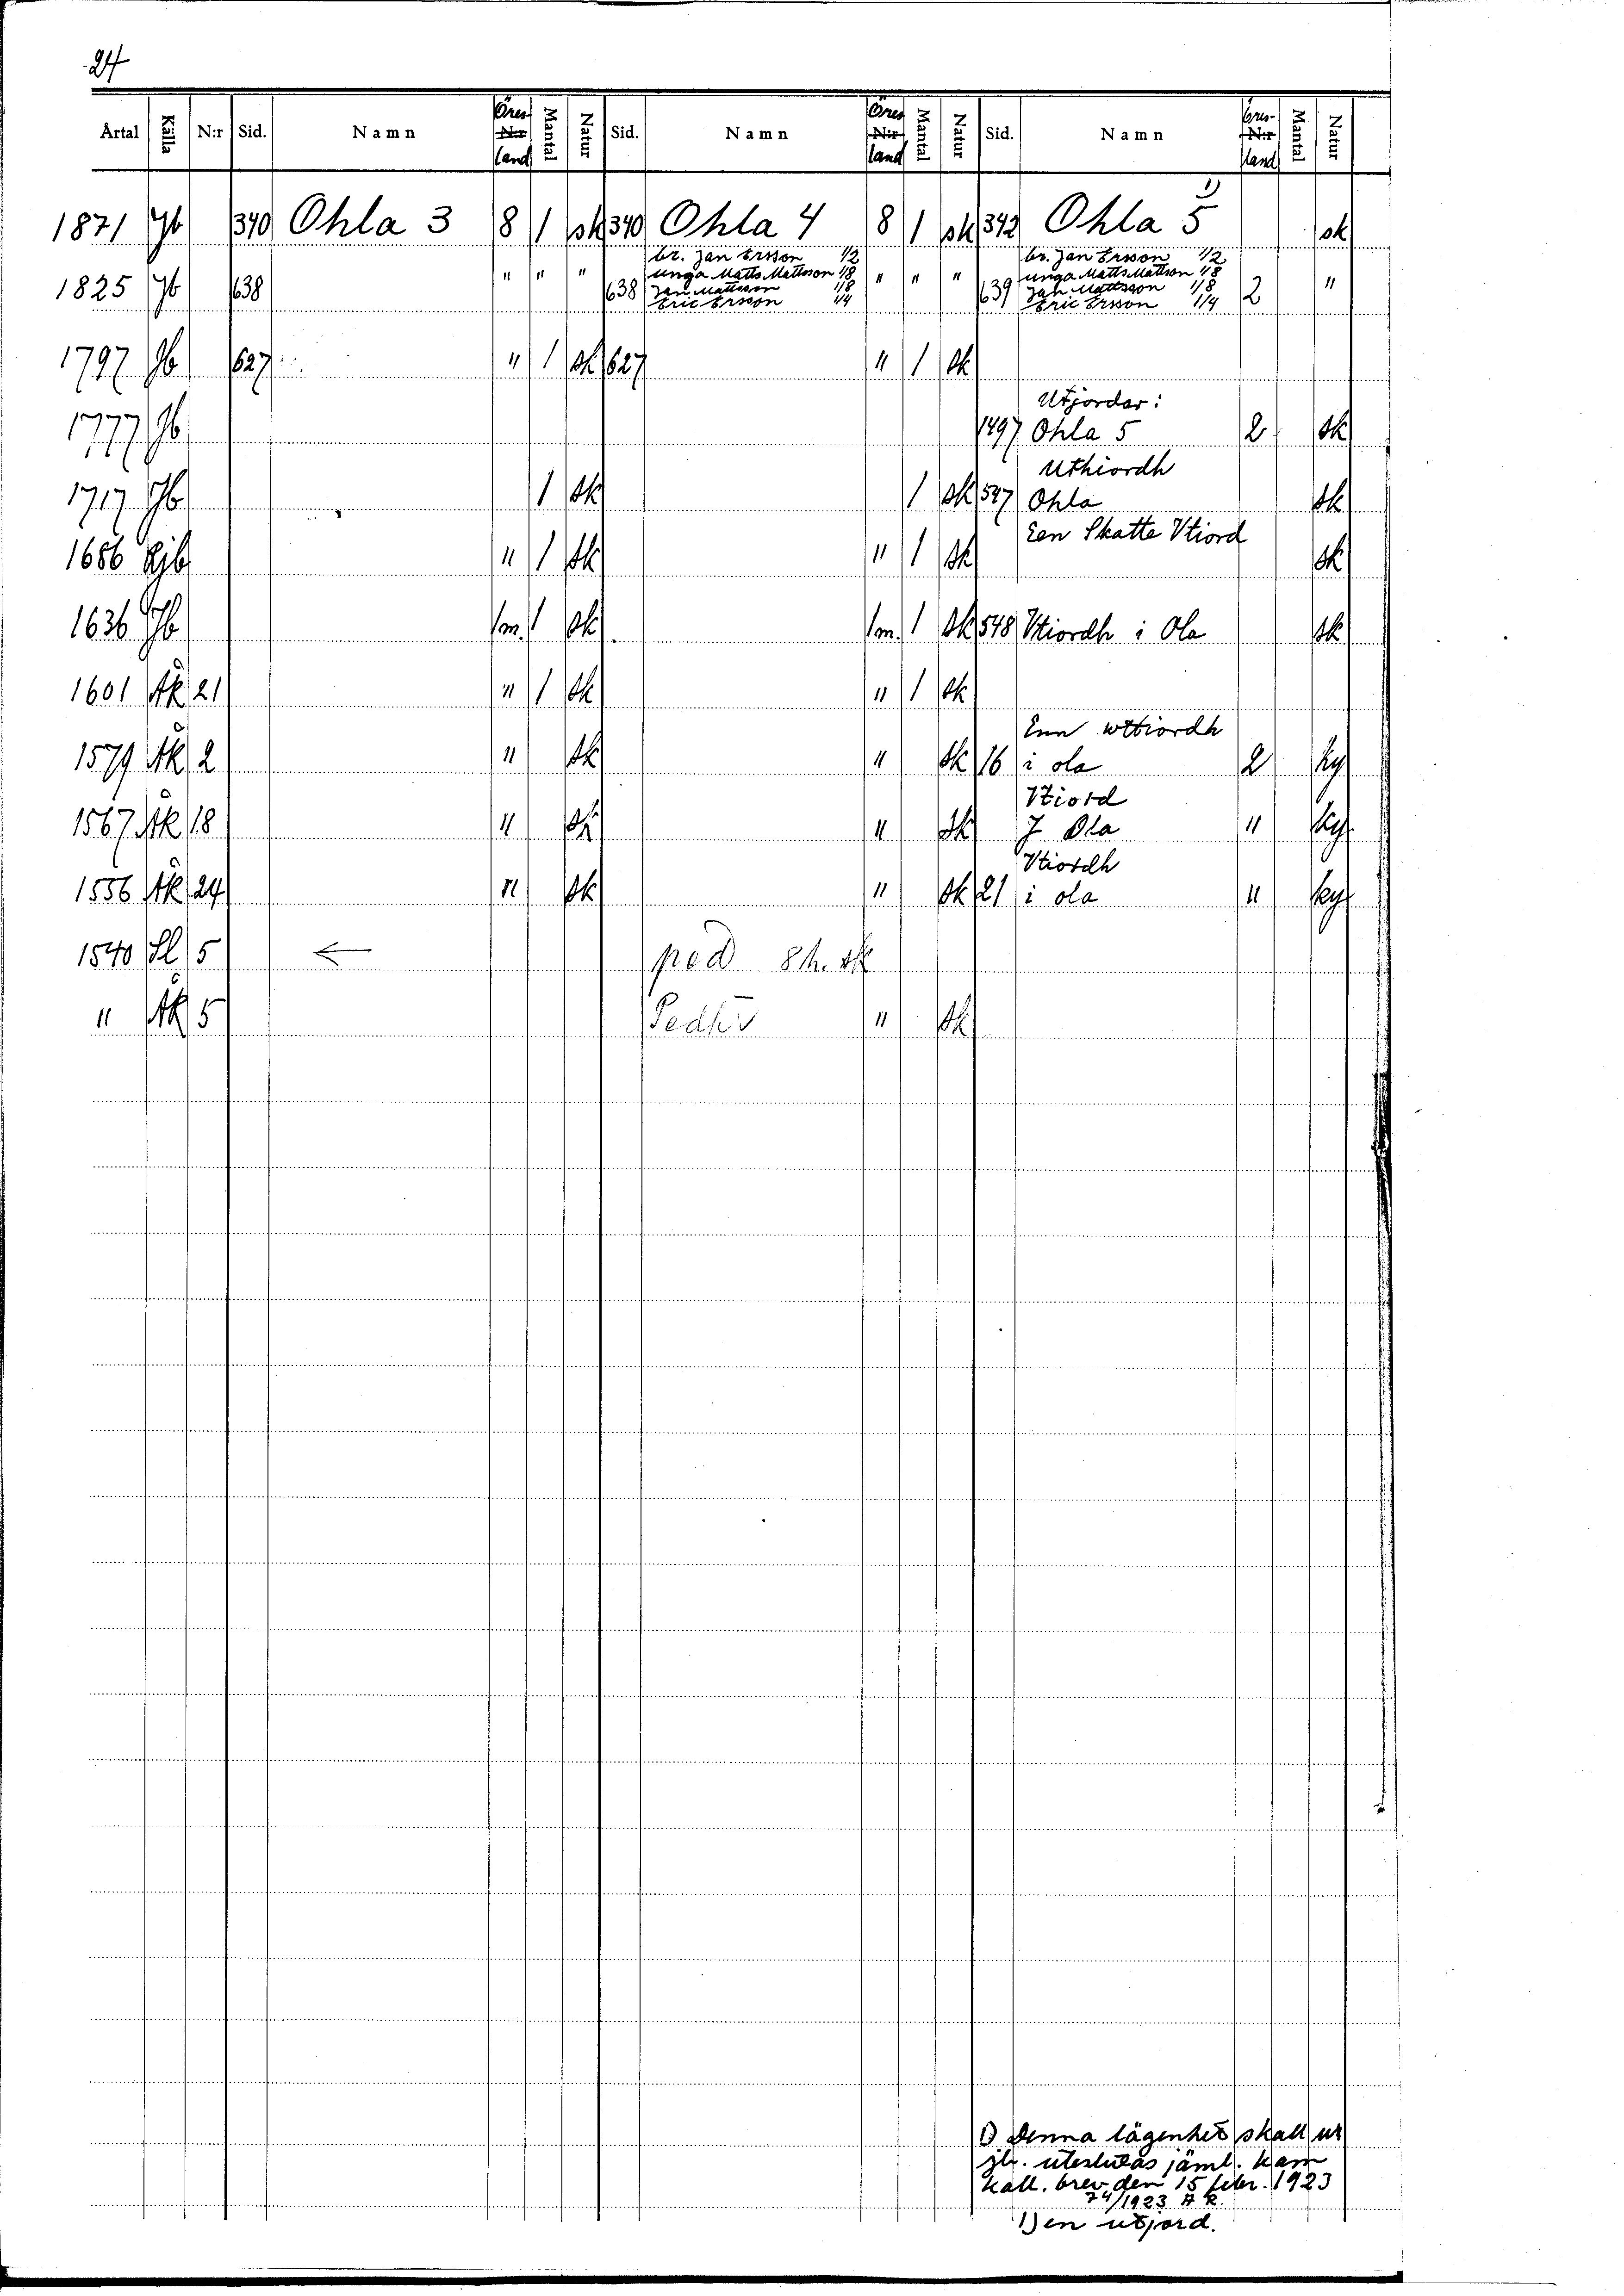 24
Årtal Källa N:r Sid. Namn Öres- N:r land Mantal Natur Sid. Namn Öres N:r land Mantal Natur Sid. Namn Öres- N:r land Mantal Natur
1871 Jb 340 Ohla 3 8 1 sk 340 Ohla 4 8 1 sk 342 Ohla 5 1) sk
br. Jan Ersson 1/2 br. Jan Ersson 1/2
unga Matts Mattsson 1/8 unga Matts Mattson 1/8
1825 Jb 638 " " " 638 Jan Mattsson 1/8 " " " 639 Jan Mattsson 1/8 2 "
Eric Ersson 1/4 Eric Ersson 1/4
1797 Jb 627 " 1 sk 627 " 1 sk
Utjordar:
1777 Jb 1497 Ohla 5 2 sk
Uthiordh
1717 Jb 1 sk 1 sk 547 Ohla sk
Een Skatte Vtiord
1686 " 1 sk " 1 sk sk
1636 Jb 1m. 1 sk 1m. 1 sk 548 Vtiordh i Ola sk
1601 Åk 21 " 1 sk " 1 sk
Enn wttiordh
1579 Åk 2 " sk " sk 16 i ola 2 ky
Vtiord
1567 Åk 18 " sk " sk J Ola " ky
Vtiordh
1556 Åk 24 " sk " sk 21 i ola " ky
1540 Sl 5 ← ped 8 h. sk
" Åk 5 Pedhr " sk
1) Denna lägenhet skall ur
jb. uteslutas jäml. Kam
Koll. brev den 15 febr. 1923
74/1923 A R.
1) en utjord.